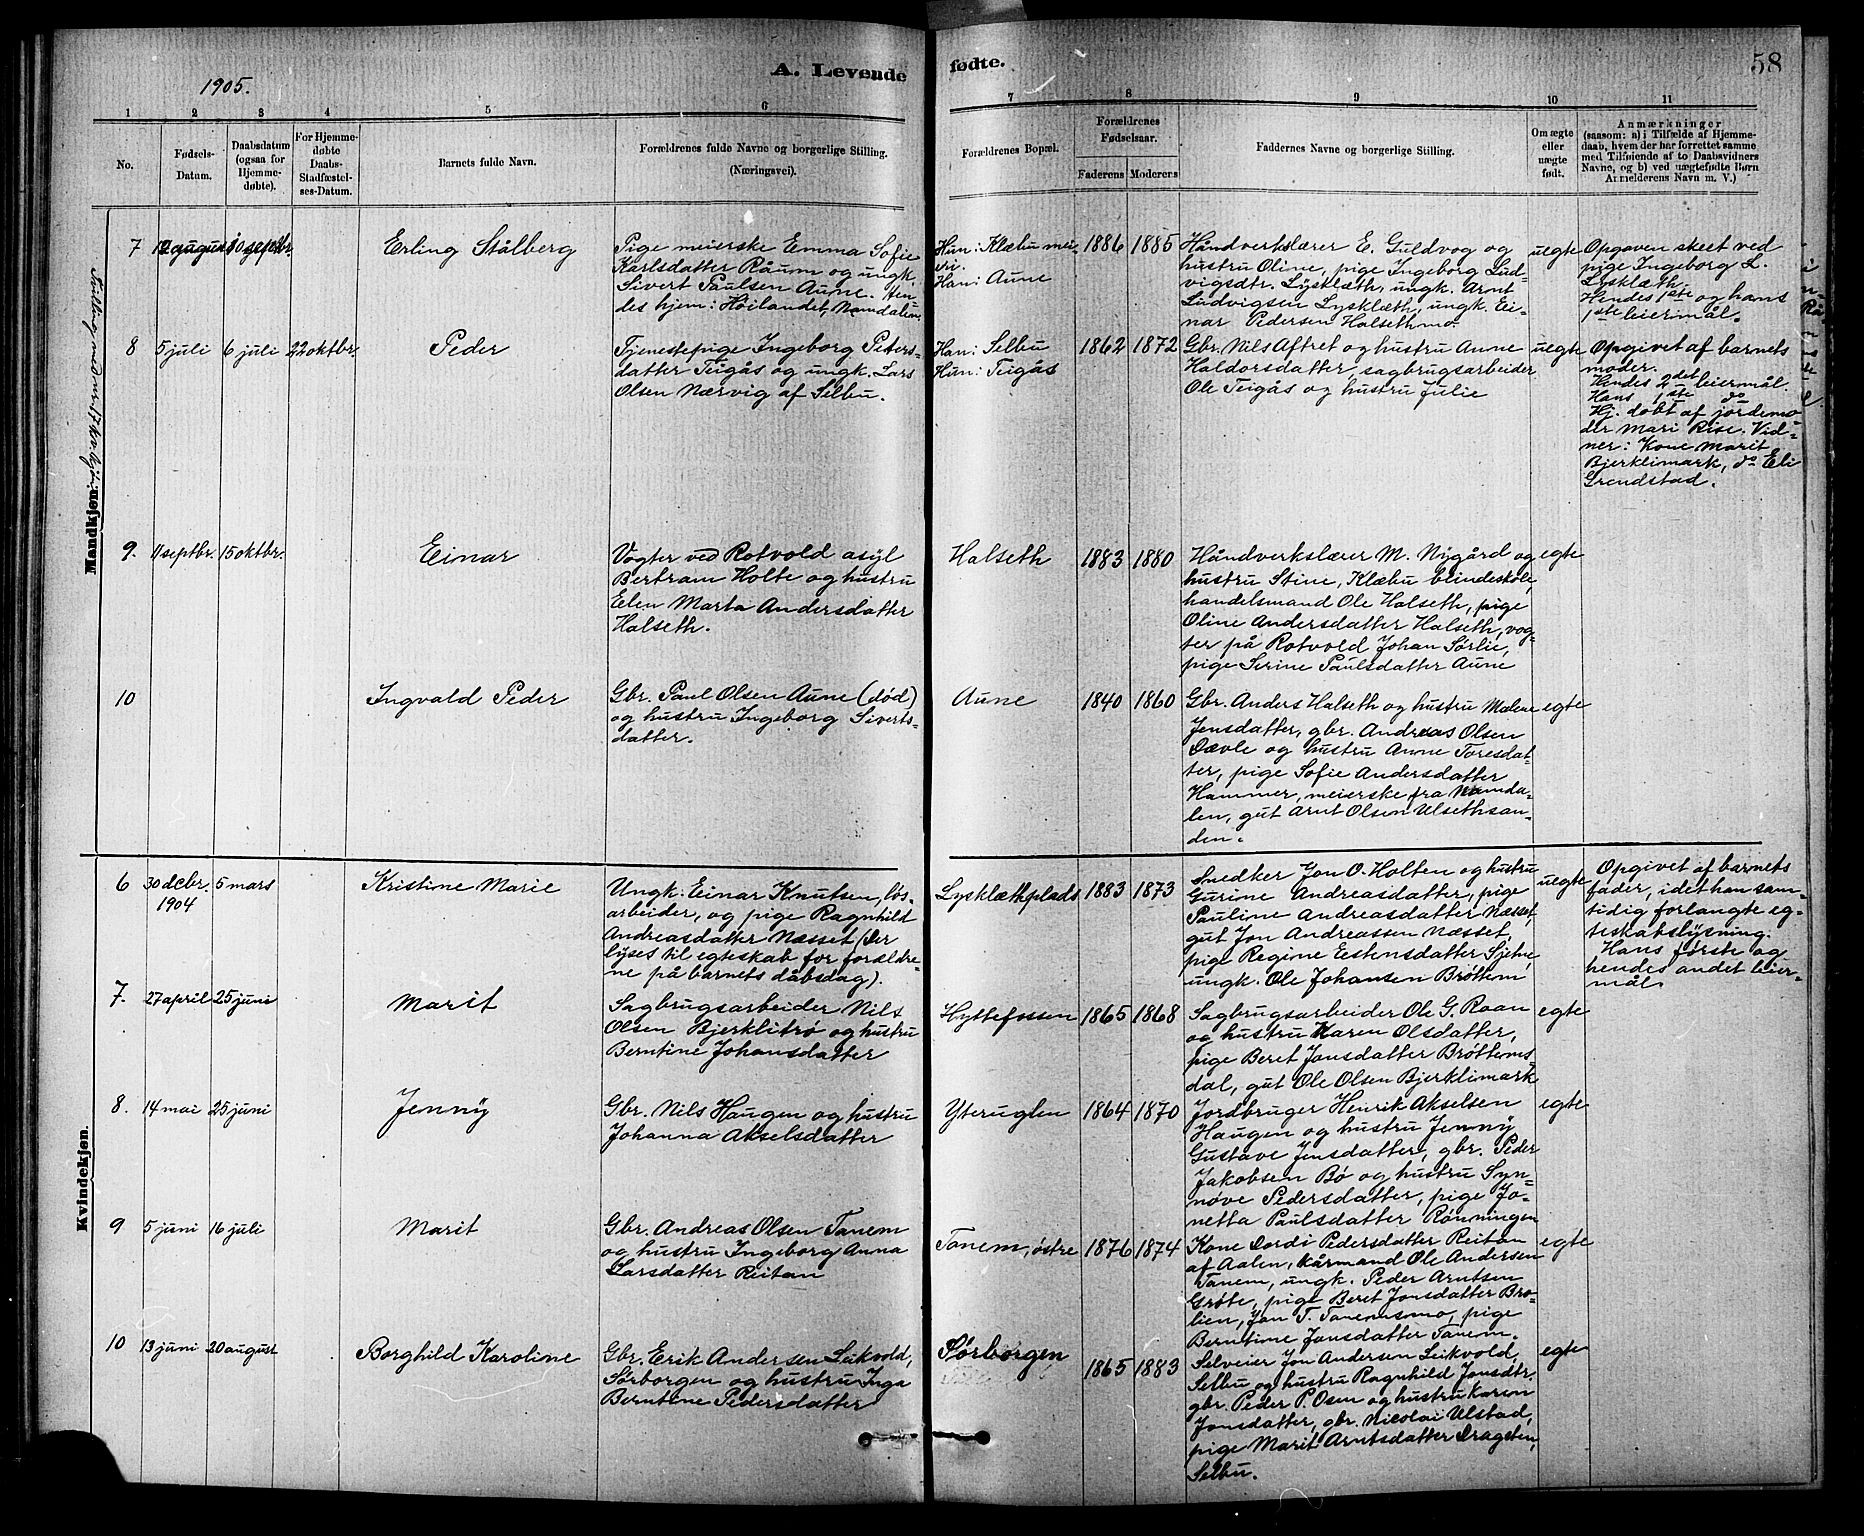 1905.
A. Levende
fødte.
58
1
2
3
4
5
6
7
8
9
10
11
No.
Fødsels-
Datum.
Daabsdatum
(ogsaa for
Hjemme-
døbte).
For Hjemme-
døbte
Daabs-
Stadfæstel-
ses-Datum.
Barnets fulde Navn.
Forældrenes fulde Navne og borgerlige Stilling.
(Næringsvei).
Forældrenes Bopæl.
Forældrenes
Fødselsaar.
Faderens
Moderens
Faddernes Navne og borgerlige Stilling.
Om ægte
eller
uægte
født.
Anmærkninger
(saasom: a) i Tilfælde af Hjemme-
daab, hvem der har forrettet samme
med Tilføiende af to Daabsvidners
Navne, og b) ved uægtefødte Børn
Anmelderens Navn m. V.)
Mandkjøn.
7
septbr.
Erling Stålberg
Pige meierske Emma Sofie
Karlsdatter Råum og ungk.
Sivert Paulsen Aune. Hen-
des hjem: Höilandet, Namdalen.
Hun: Klæbu mei-
eri.
Han: Aune
1886
1885
Håndverkslærer E. Guldvog og
hustru Oline, pige Ingeborg Lud-
vigsdtr. Lysklæth, ungk. Arnt
Ludvigsen Lysklæth, ungk. Ei-
nar Pedersen Halsethmo
uegte
Opgaven skeet ved
pige Ingeborg L.
Lysklæth.
Hendes 1ste og hans
1ste leiermål.
8
5 juli
6 juli
22 oktbr.
Peder
Tjenestepige Ingeborg Peters-
datter Teigås og ungk. Lars
Olsen Nærvig af Selbu.
Han: Selbu
Hun: Teigås
1862
1872
Gbr. Nils Aftret og hustru Anne
Haldorsdatter, sagbrugsarbeider
Ole Teigås og hustru Julie
uegte
Opgivet af barnets
moder.
Hendes 2det leiermål.
Hans 1ste do
Hj. döbt af jordemo-
der Mari Rise. Vid-
ner: Kone Marit
Bjerklimark, do Eli
Grendstad.
9.
septbr.
15 oktbr.
Einar
Vogter ved Rotvold asyl
Bertram Holte og hustru
Elen Marta Andersdatter
Halseth.
Halseth
1883
1880
Håndverkslærer M. Nygård og
hustru Stine, Klæbu blindeskole,
handelsmand Ole Halseth, pige
Oline Andersdatter Halseth, vog-
ter på Rotvold Johan Sörlie,
pige Serine Paulsdatter Aune
egte
10
Ingvald Peder
Gbr. Paul Olsen Aune (död)
og hustru Ingeborg Siverts-
datter.
Aune
1840
1860
Gbr. Anders Halseth og hustru Malene
Jensdatter, gbr. Andreas Olsen
Davle og hustru Anne Toresdat-
ter, pige Sofie Andersdatter
Hammer, meierske fra Namda-
len, gut Arnt Olsen Ulsethsan-
den.
egte
Kvindekjøn.
6
30 dcbr.
1904
5 mars
Kristine Marie
Ungk. Einar Knutsen, lös-
arbeider, og pige Ragnhild
Andreasdatter Næsset (Der
lyses til egteskab for forældre-
ne på barnets dåbsdag).
Lysklæthplads
1883
1873
Snedker Jon O. Holten og hustru
Gurine Andreasdatter, pige
Pauline Andreasdatter Næsset,
gut Jon Andreassen Næsset,
pige Regine Estensdatter Sjetne,
ungk. Ole Johansen Bröttem
uegte
Opgivet af barnets
fader, idet han sam-
tidig forlangte eg-
teskabslysning.
Hans förste og
hendes andet leier-
mål.
7.
27 april
25 juni
Marit
Sagbrugsarbeider Nils
Olsen Bjerklitrö og hustru
Berntine Johansdatter
Hyttefossen
1865
1868
Sagbrugsarbeider Ole G. Raan
og hustru Karen Olsdatter,
pige Beret Jonsdatter Bröttems-
dal, gut Ole Olsen Bjerklimark
egte
8.
14 mai
25 juni
Jenny
Gbr. Nils Haugen og hustru
Johanna Akselsdatter
Yteruglen
1864
1870
Jordbruger Henrik Akselsen
Haugen og hustru Jenny
Gustave Jensdatter, gbr. Peder
Jakobsen Bö og hustru Syn-
növe Pedersdatter, pige Jo-
netta Paulsdatter Rönningen
egte
9
5 juni
16 juli
Marit
Gbr. Andreas Olsen Tanem
og hustru Ingeborg Anna
Larsdatter Reitan
Tanem, östre
1876
1874
Kone Dordi Pedersdatter Reitan
af Aalen, kårmand Ole Andersen
Tanem, ungk. Peder Arntsen
Gröte, pige Beret Jonsdatter Bro-
lien, Jon T. Tanemsmo, pige
Berntine Jonsdatter Tanem.
egte
10
13 juni
20 august
Borghild Karoline
Gbr. Erik Andersen Leikvold,
Sörborgen og hustru Inga
Berntine Pedersdatter
Sörborgen
1865
1883
Selveier Jon Andersen Leikvold,
Selbu og hustru Ragnhild Jonsdtr.
gbr. Peder P. Osen og hustru Karen
Jonsdatter, gbr. Nicolai Ulstad,
pige Marit Arntsdatter Dragsten,
Selbu.
egte